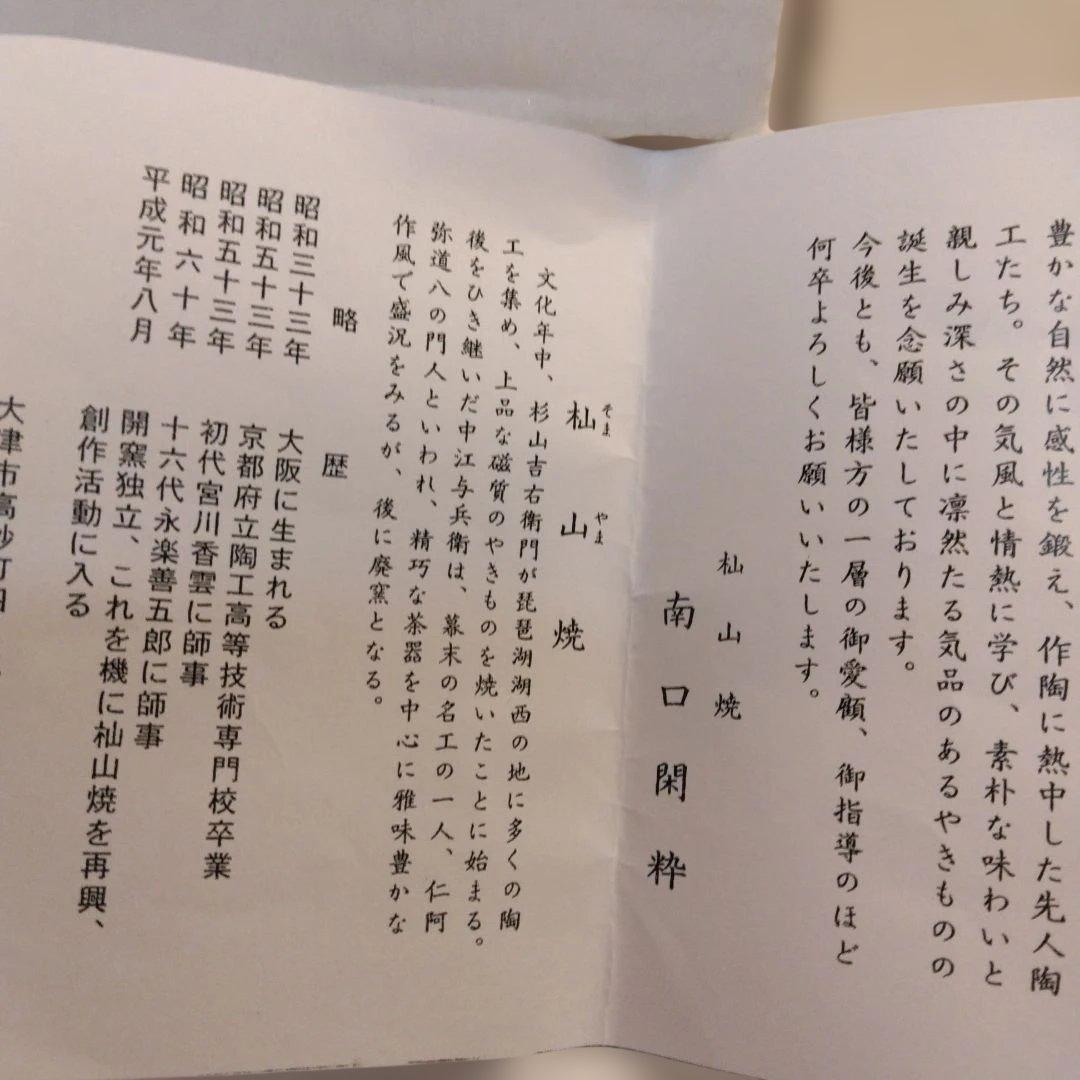 豊かな自然に感性を鍛え、作陶に熱中した先人陶
工たち。その気風と情熱に学び、素朴な味わいと
親しみ深さの中に凛然たる気品のあるやきものの
誕生を念願いたしております。
今後とも、皆様方の一層の御愛顧、御指導のほど
何卒よろしくお願いいたします。
杣山焼
南口閑粋
杣山焼
そまやま
文化年中、杉山吉右衛門が琵琶湖湖西の地に多くの陶
工を集め、上品な磁質のやきものを焼いたことに始まる。
後をひき継いだ中江与兵衛は、幕末の名工の一人、仁阿
弥道八の門人といわれ、精巧な茶器を中心に雅味豊かな
作風で盛況をみるが、後に廃窯となる。
略歴
昭和三十三年 大阪に生まれる
昭和五十三年 京都府立陶工高等技術専門校卒業
昭和五十三年 初代宮川香雲に師事
昭和六十年 十六代永楽善五郎に師事
平成元年八月 開窯独立、これを機に杣山焼を再興、
創作活動に入る
大津市高砂町